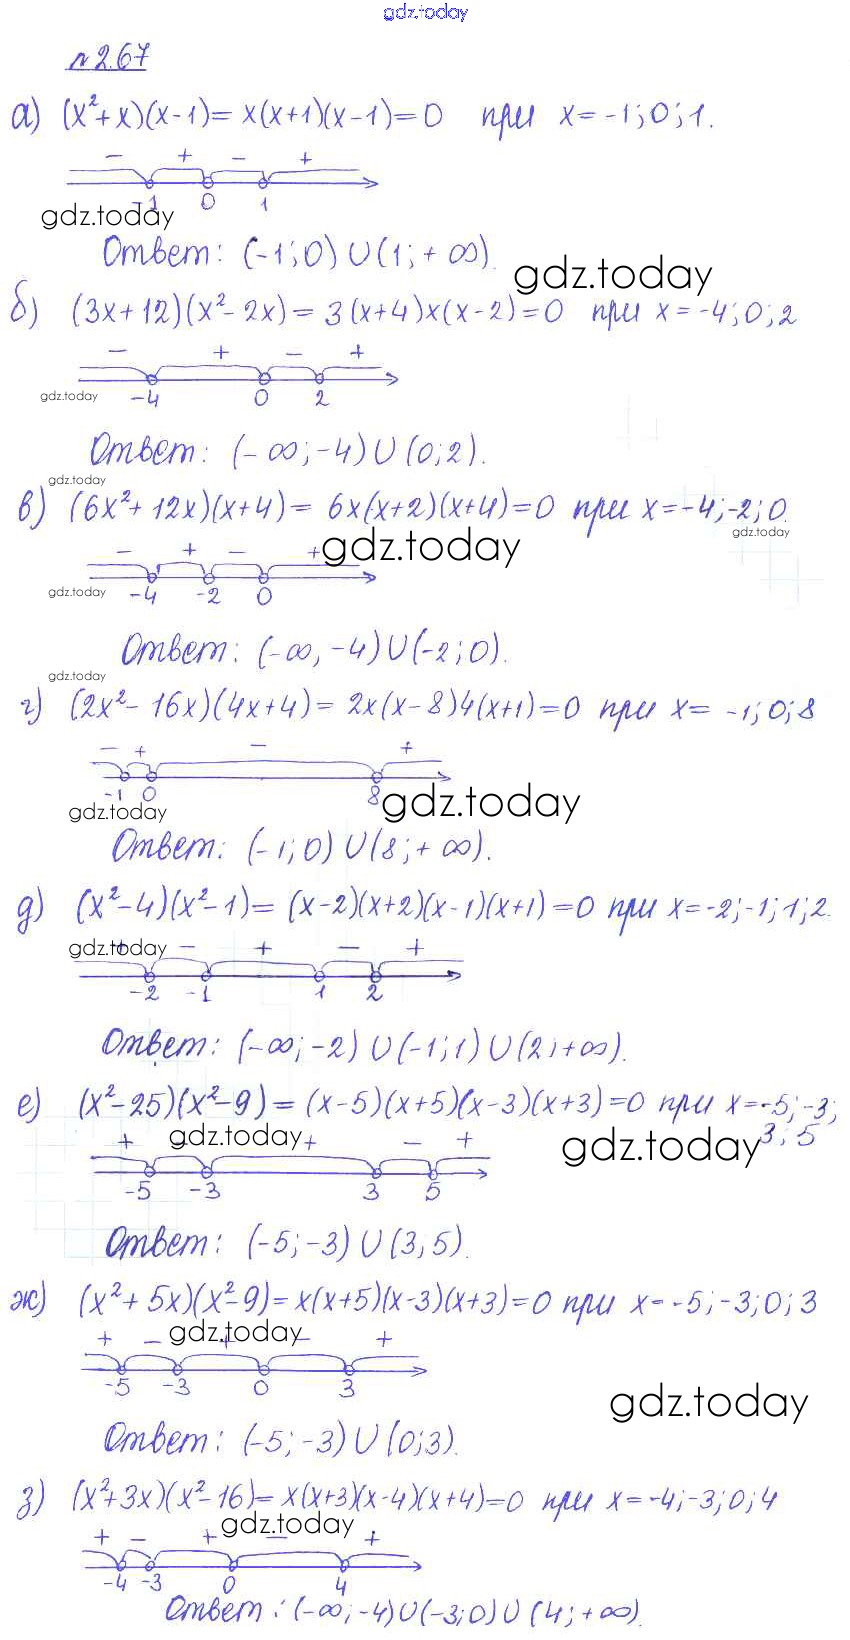 gdz.today
№ 2.67
а) (x²+x)(x-1)= x(x+1)(x-1)=0 при x= -1; 0; 1.
- + - +
-1 0 1
gdz.today
Ответ: (-1; 0) ∪ (1; +∞).
gdz.today
б) (3x+12)(x²-2x)= 3(x+4)x(x-2)=0 при x= -4; 0; 2
- + - +
gdz.today -4 0 2
Ответ: (-∞; -4) ∪ (0; 2).
gdz.today
в) (6x²+12x)(x+4)= 6x(x+2)(x+4)=0 при x=-4; -2; 0.
gdz.today
- + - + gdz.today
gdz.today -4 -2 0
Ответ: (-∞, -4) ∪ (-2; 0).
gdz.today
г) (2x²-16x)(4x+4)= 2x(x-8)4(x+1)=0 при x= -1; 0; 8
- + - +
-1 0 8 gdz.today
gdz.today
Ответ: (-1; 0) ∪ (8; +∞).
д) (x²-4)(x²-1)= (x-2)(x+2)(x-1)(x+1)=0 при x=-2; -1; 1; 2.
gdz.today
+ - + - +
-2 -1 1 2
Ответ: (-∞; -2) ∪ (-1; 1) ∪ (2; +∞).
е) (x²-25)(x²-9)= (x-5)(x+5)(x-3)(x+3)=0 при x=-5; -3;
3; 5
+ gdz.today + - + gdz.today
-5 -3 3 5
Ответ: (-5; -3) ∪ (3; 5).
ж) (x²+5x)(x²-9)= x(x+5)(x-3)(x+3)=0 при x=-5; -3; 0; 3
+ - gdz.today + - +
-5 -3 0 3
gdz.today
Ответ: (-5; -3) ∪ (0; 3).
з) (x²+3x)(x²-16)= x(x+3)(x-4)(x+4)=0 при x=-4; -3; 0; 4
gdz.today
+ - + - +
-4 -3 0 4
Ответ: (-∞; -4) ∪ (-3; 0) ∪ (4; +∞).